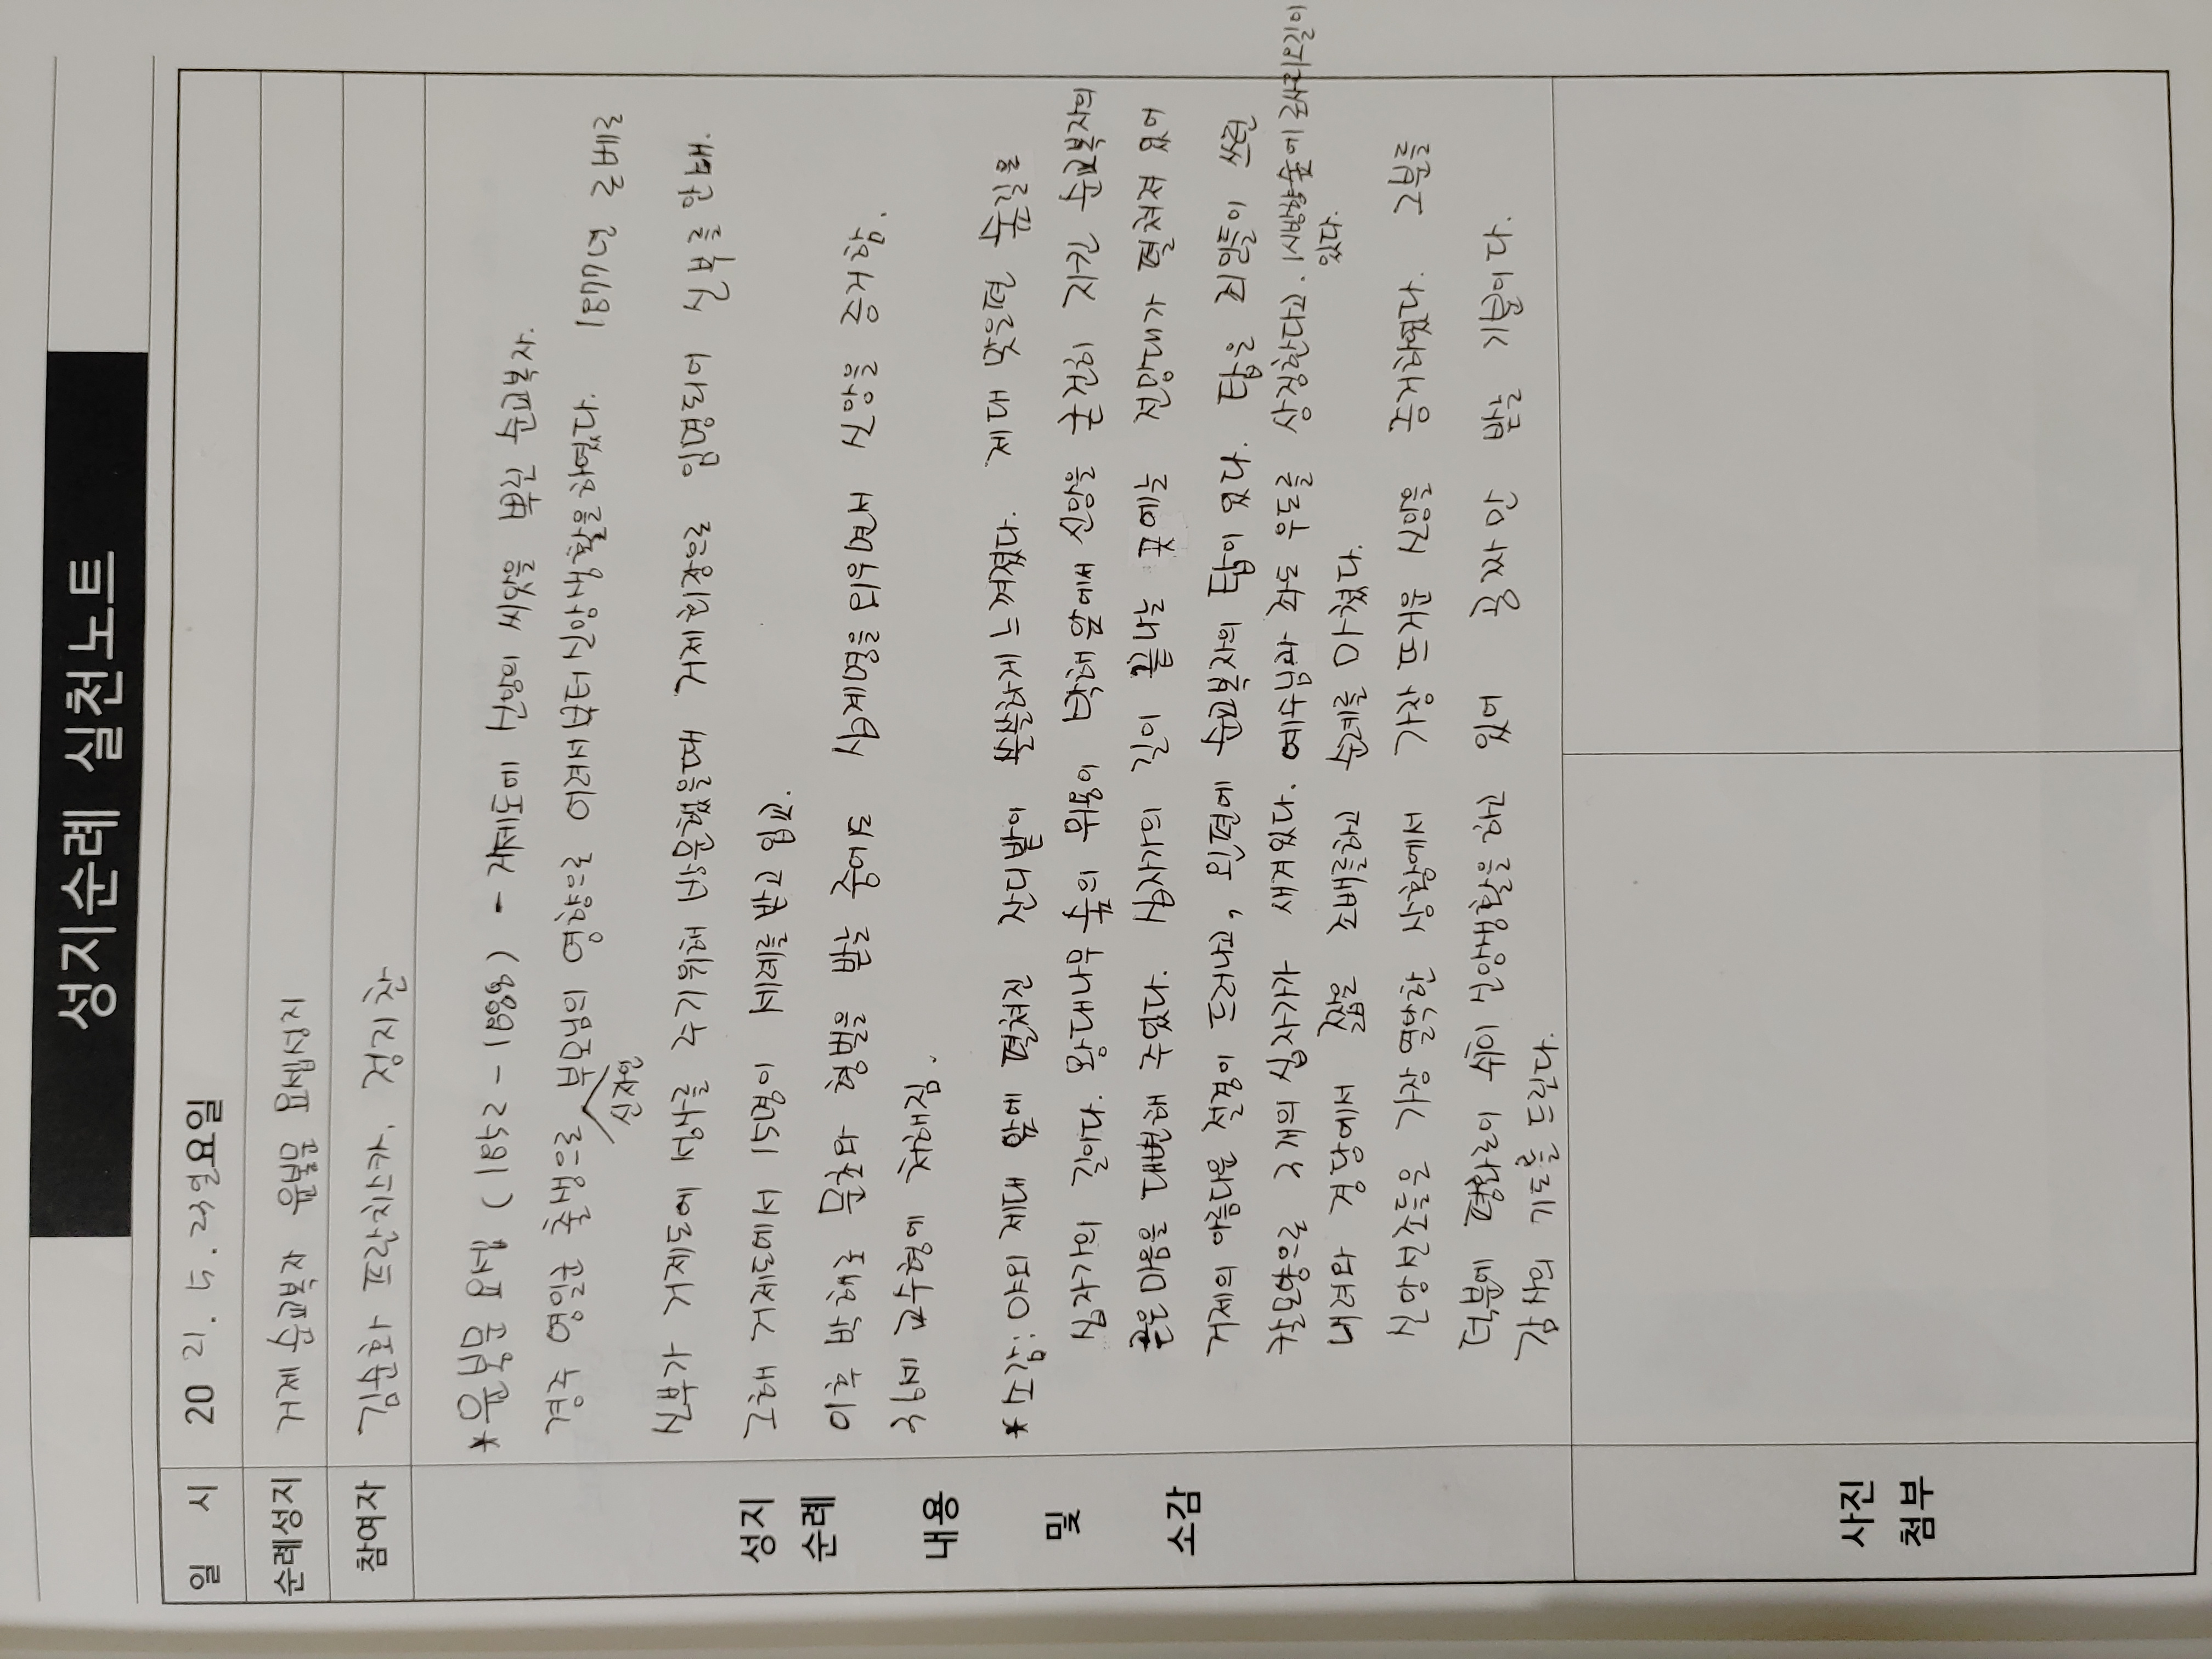 성지순례 실천노트
일 시 20 21. 5. 23일요일
순례성지 거제 순교복자 윤봉문 요셉성지
참여자 김순화 프란치스카, 정지찬
성지
순례
내용
및
소감
*윤봉문 요셉 (1852 - 1888) - 거제도에 신앙의 씨앗을 뿌린 순교복자.
경주 영일군 출생으로 신자인 부모님의 영향으로 어려서부터신앙생활을하였다. 1887년 로베르
신부가 거제도에 성사를 주기위해 방문했을때 거제회장으로 임명되어 신부를 안내.
그해 거제도에서 15명이 세례를받고입교.
이후 박해로 문초와 형벌을 받는 와중 십계명을외워며 신앙을 증거함.
37세 교수형에 처해짐.
*소감: 야외 제대 앞에 펼쳐진 잔디밭이 쓸쓸하게느껴졌다. 제대 맞은편 숲길은
십자가의 길이다. 왕대나무 숲의 위용이 박해앞에서 신앙을 굳건히 지킨 순교복자의
굳은마음을 대변해 주었다. 십자가의 길이 끝나는 곳에는 전망대가 펼쳐져 있어
거제의 아름다운 절경이 드러나고, 왼편에 순교복자의 탑이 있다. 탑은 죄인들이 쓰던
칼모양으로 4개의 십자가가 새겨있다. 예수님과 좌도 우도를 상징한다고. 1시방향숲에로사리오길이
있다.
내려와 경당에서 짧은 조배를하고 순례를 마쳤다.
신앙선조들은 가장 열악한 상황에서 가장 뜨거운 신앙을 증거하였다. 그분들
덕분에 평화로이 쉬이 신앙생활을 하고 있어
감사의 기도를 드린다.
사진
첨부